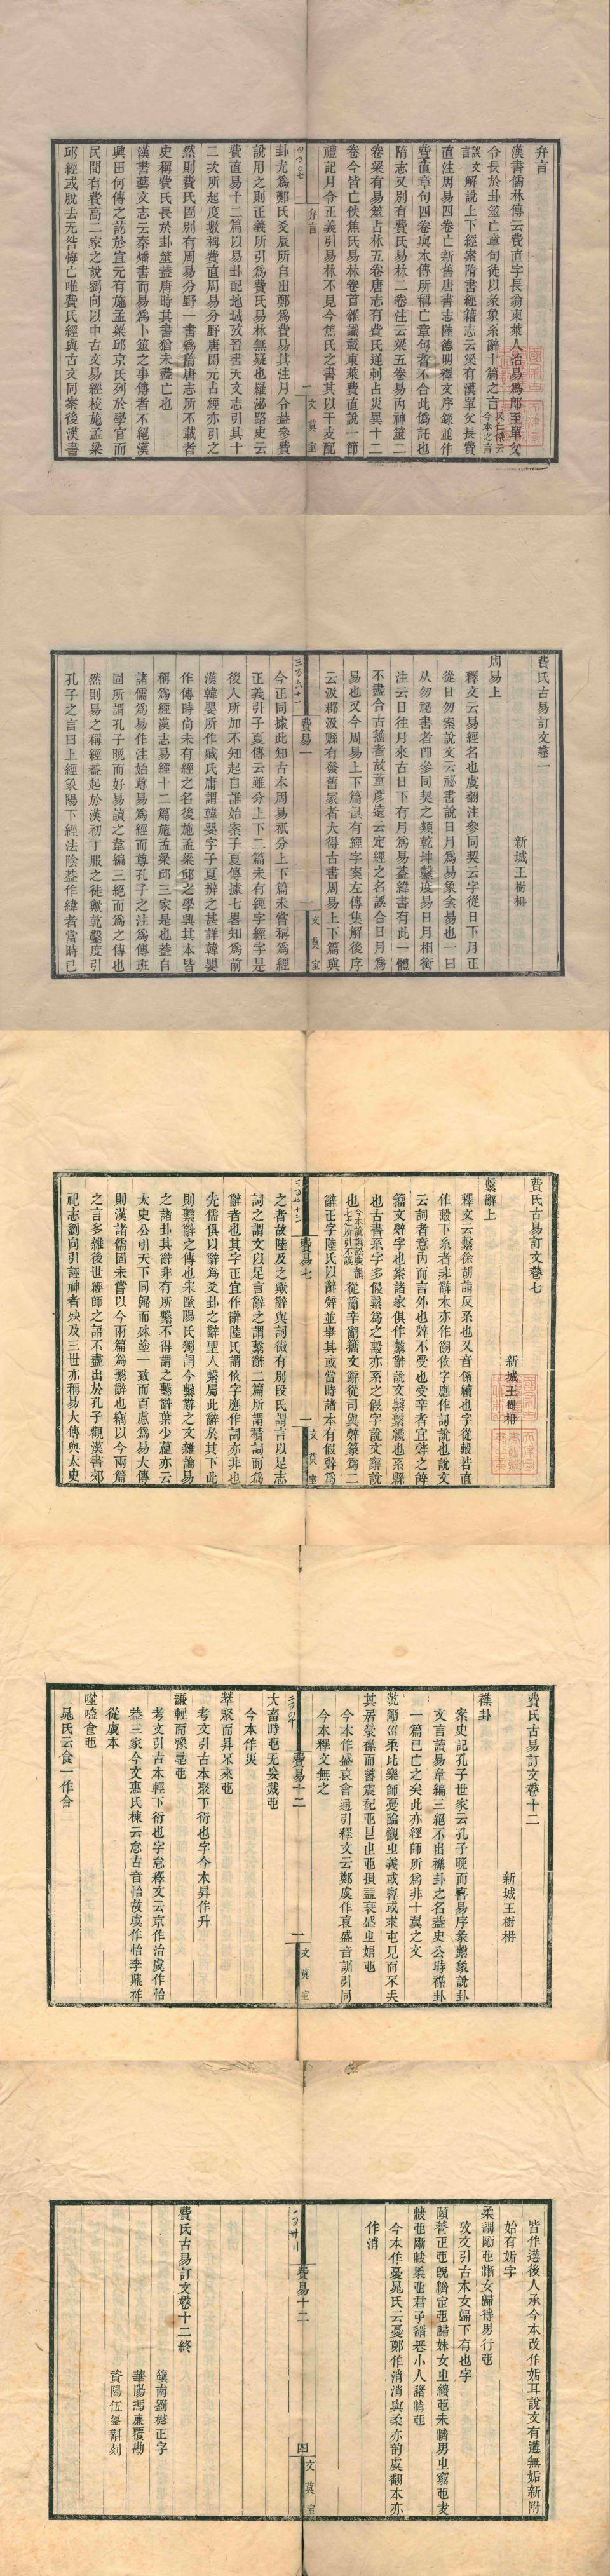 弁言
漢書儒林傳云費直字長翁東萊人治易爲郎至單父
令長於卦筮亡章句徒以彖象系辭十篇之言吳仁傑云今本之言
誤文言解說上下經案隋書經籍志云梁有漢單父長費
直注周易四卷亡新舊唐書志陸德明釋文序錄並作
費直章句四卷與本傳所稱亡章句者不合此僞託也
隋志又別有費氏易林二卷注云梁五卷易內神筮二
卷梁有易筮占林五卷唐志有費氏逆刺占災異十二
卷今皆亡佚焦氏易林卷首雜識載東萊費直說一節
禮記月令正義引易林不見今焦氏之書其以干支配
弁言
一
文莫室
卦尤爲鄭氏爻辰所自出鄭爲費易其注月令蓋參費
說用之則正義所引爲費氏易林無疑也羅泌路史云
費直易十二篇以易卦配地域攷晉書天文志引其十
二次所起度數稱費直周易分野唐開元占經亦引之
然則費氏固別有周易分野一書爲隋唐志所不載者
史稱費氏長於卦筮蓋唐時其書猶未盡亡也
漢書藝文志云秦燔書而易爲卜筮之事傳者不絕漢
興田何傳之訖於宣元有施孟梁邱京氏列於學官而
民間有費高二家之說劉向以中古文易經校施孟梁
邱經或脫去无咎悔亡唯費氏經與古文同案後漢書
費氏古易訂文卷一
新城王樹枏
周易上
釋文云易經名也虞翻注參同契云字從日下月正
從日勿案說文云祕書說日月爲易象侌昜也一曰
从勿祕書者卽參同契之類乾坤鑿度易日月相銜
注云日往月來古日下有月爲易蓋緯書有此一體
不盡合古籀者故董彥遠云定經之名誤合日月爲
易也又今周易上下篇俱有經字案左傳集解後序
云汲郡汲縣有發舊冢者大得古書周易上下篇與
費易一
一
文莫室
今正同據此知古本周易祇分上下篇未嘗稱爲經
正義引子夏傳云雖分上下二篇未有經字經字是
後人所加不知起自誰始案子夏傳據七畧知爲前
漢韓嬰所作臧氏庸謂韓嬰字子夏辨之甚詳韓嬰
作傳時尚未有經之名後施孟梁邱之學興其本皆
稱爲經漢志易經十二篇施孟梁邱三家是也蓋自
諸儒爲易作注始尊易爲經而尊孔子之注爲傳班
固所謂孔子晚而好易讀之韋編三絕而爲之傳也
然則易之稱經蓋起於漢初丁服之徒歟乾鑿度引
孔子之言曰上經象陽下經法陰蓋作緯者當時已
費氏古易訂文卷七
新城王樹枏
繫辭上
釋文云繫徐胡詣反系也又音係續也字從毄若直
作毄下系者非辭本亦作嗣依字應作詞說也說文
云詞者意內而言外也辤不受也受辛者宜辤之辝
籀文辤字也案諸家俱作繫辭說文繫繫繻也系縣
也古書系字多假繫爲之毄亦系之假字說文辭說
也今本說譌訟廣韻七之所引不誤從𤔲辛嗣籀文辭從司與辤篆爲二
辭正字陸氏以辭辤並舉其或當時諸本有假辤爲
費易七
一
文莫室
之者故陸及之歟辭與詞微有別段氏謂言以足志
詞之謂文以足言辭之謂繫辭二篇所謂積詞而爲
辭者也其字正宜作辭陸氏謂依字應作詞亦非也
先儒俱以辭爲爻卦之辭聖人繫屬此辭於其下此
則繫辭之傳也宋歐陽氏獨謂今繫辭之文雜論易
之諸卦其辭非有所繫不得謂之繫辭葉少蘊亦云
太史公引天下同歸而殊塗一致而百慮爲易大傳
則漢諸儒固未嘗以今兩篇爲繫辭也竊以今兩篇
之言多雜後世經師之語不盡出於孔子觀漢書郊
祀志劉向引誣神者殃及三世亦稱易大傳與太史
費氏古易訂文卷十二
新城王樹枏
襍卦
案史記孔子世家云孔子晚而喜易序彖繫象說卦
文言讀易韋編三絕不出襍卦之名蓋史公時襍卦
一篇已亡之矣此亦經師所爲非十翼之文
乾剛巛柔比樂師憂臨觀㞢義或與或求屯見而不失
其居蒙襍而著震起也艮止也損益衰盛㞢始也
今本作盛衰會通引釋文云鄭虞作衰盛音訓引同
今本釋文無之
費易十二
一
文莫室
大畜時也无妄烖也
今本作災
萃聚而昇不來也
考文引古本聚下衍也字今本昇作升
謙輕而豫怠也
考文引古本輕下衍也字怠釋文云京作治虞作怡
蓋三家今文惠氏棟云怠古音怡故虞作怡李鼎祚
從虞本
噬嗑食也
晁氏云食一作合
皆作遘後人承今本改作姤耳說文有遘無姤新附
始有姤字
柔遇剛也漸女歸待男行也
攷文引古本女歸下有也字
頤養正也旣濟定也歸妹女㞢終也未濟男㞢窮也夬
決也剛決柔也君子道長小人道消也
今本作憂晁氏云憂鄭作消消與柔亦韵虞翻本亦
作消
費易十二
四
文莫室
費氏古易訂文卷十二終
鎮南劉樾正字
華陽馮廉覆勘
資陽伍鋆斠刻